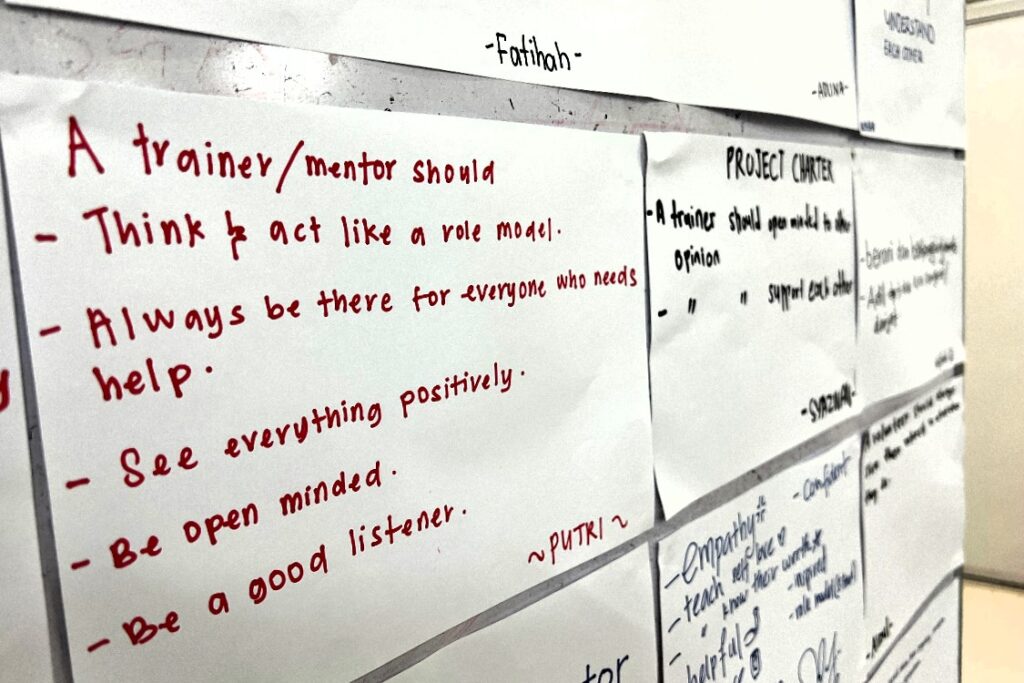 -Fatihah-
-ADLINA-
UNDERSTAND
EACH OTHER
A trainer/mentor should
- Think & act like a role model.
- Always be there for everyone who needs
help.
- See everything positively.
- Be open minded.
- Be a good listener.
~PUTRI~
PROJECT CHARTER
-A trainer should open minded to other
opinion
- " " support each other
-SYAZWAN-
- berani dan
A volunteer should always
- confident
- empathy
- teach self love
- " know their worth
- inspired
- role model
- helpful